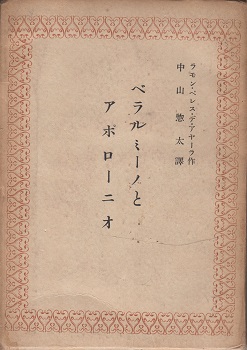 ラモン・ペレス・デ・アヤーラ作
中山惣太譯
ベラルミーノと
アポローニオ